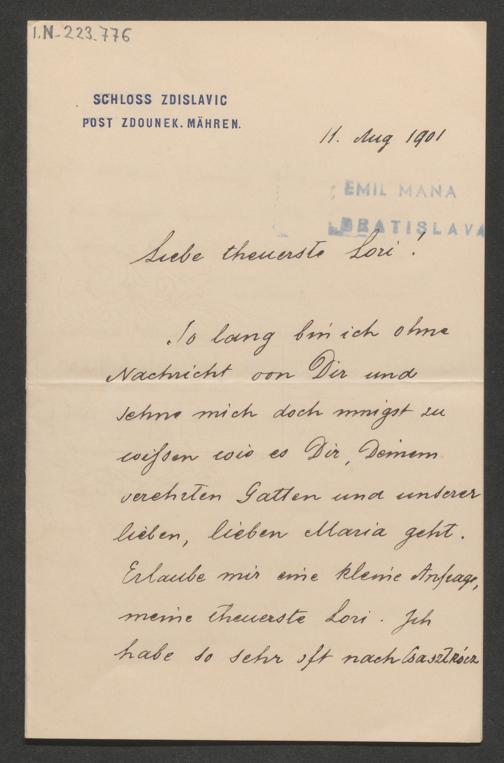 I.N-223.776
SCHLOSS ZDISLAVIC
POST ZDOUNEK. MÄHREN.
11. Aug 1901
EMIL MANA
BRATISLAVA
Liebe theuerste Lori!
So lang bin ich ohne
Nachricht von Dir und
sehne mich doch innigst zu
wißen wie es Dir, Deinem
verehrten Gatten und unserer
lieben, lieben Maria geht.
Erlaube mir eine kleine Anfrage,
meine theuerste Lori. Ich
habe so sehr oft nach